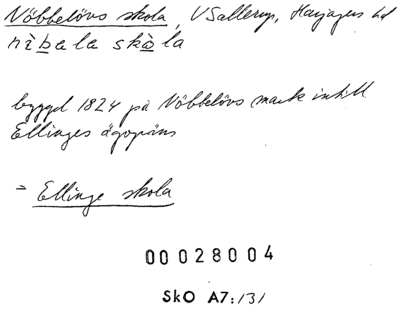 Nöbbelövs skola, VSallerup, Harjagers hd
nìbala skòla
byggd 1824 på Nöbbelövs mark intill
Ellinges ägogräns
= Ellinge skola
00028004
SkO A7:131